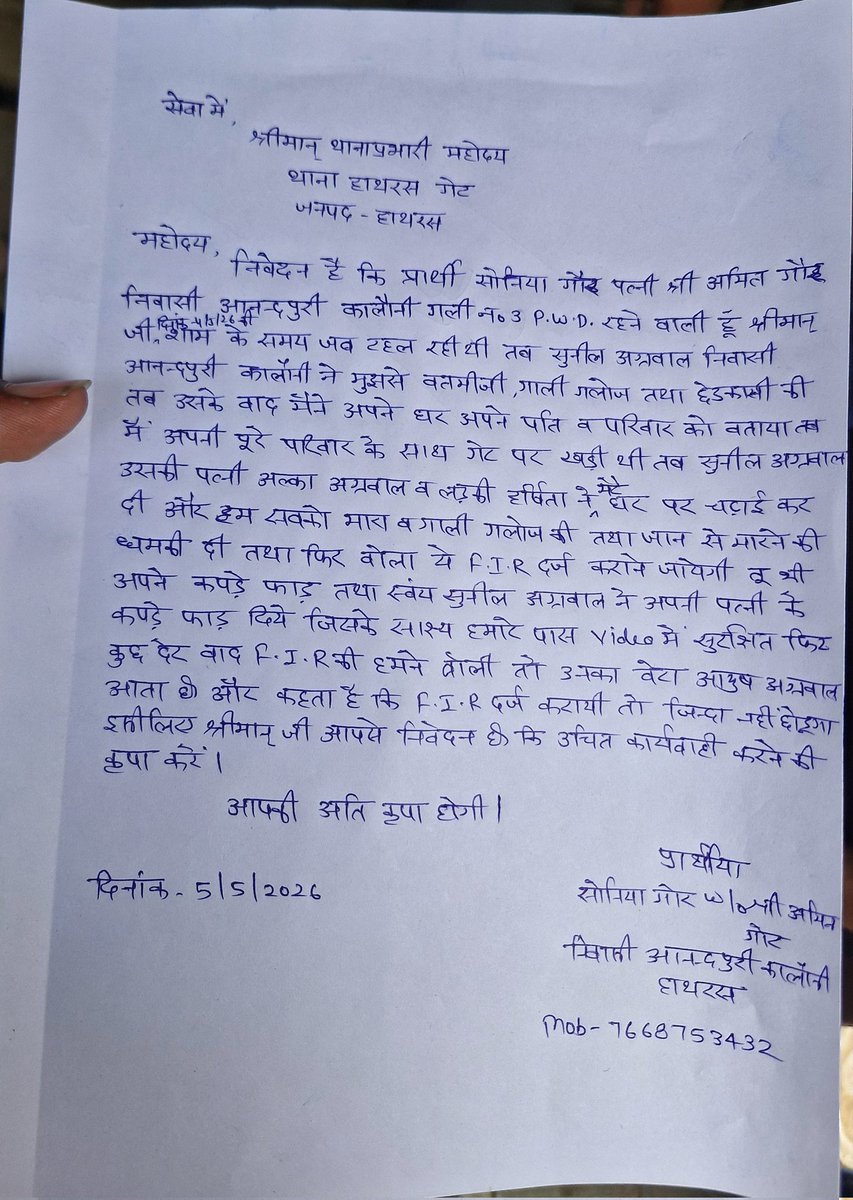 सेवा में,
श्रीमान् थानाप्रभारी महोदय
थाना हाथरस गेट
जनपद - हाथरस
महोदय,
निवेदन है कि प्रार्थी सोनिया गौर पत्नी श्री अमित गौर
निवासी आनन्दपुरी कालौनी गली no 3 P.W.D. रहने वाली हूँ श्रीमान्
दिनांक-4/5/26 की
जी, शाम के समय जब टहल रही थी तब सुनील अग्रवाल निवासी
आनन्दपुरी कार्लोनी ने मुझसे वतमीजी, गाली गलोज तथा छेडकाखी की
तब उसके वाद मैंने अपने घर अपने पति व परिवार को वताया तब
मैं अपनी पूरे परिवार के साथ गेट पर खड़ी थी तब सुनील अग्रवाल
उसकी पत्नी अल्का अग्रवाल व लड़की हर्षिता ने मेरे घर पर चढ़ाई कर
दी और हम सबको मारा व गाली गलोज की तथा जान से मारने की
धमकी दी तथा फिर वोला ये F.I.R दर्ज कराने जायेगी तू भी
अपने कपड़े फाड़ तथा स्वंय सुनील अग्रवाल ने अपनी पत्नी के
कपड़े फाड़ दिये जिसके साक्ष्य हमारे पास Video में सुरक्षित फिर
कुछ देर वाद F.I.R की हमने वोली तो उनका वेटा आयुष अग्रवाल
आता है और कहता है कि F.I.R दर्ज करायी तो जिन्दा नहीं छोडूगा
इसीलिए श्रीमान् जी आपसे निवेदन है कि उचित कार्यवाही करने की
कृपा करें।
आपकी अति कृपा होगी।
प्रार्थीया
दिनांक- 5/5/2026
सोनिया गोर w/o श्री अमित
गोर
निवासी आनन्दपुरी कार्लोनी
हाथरस
Mob- 7668753432